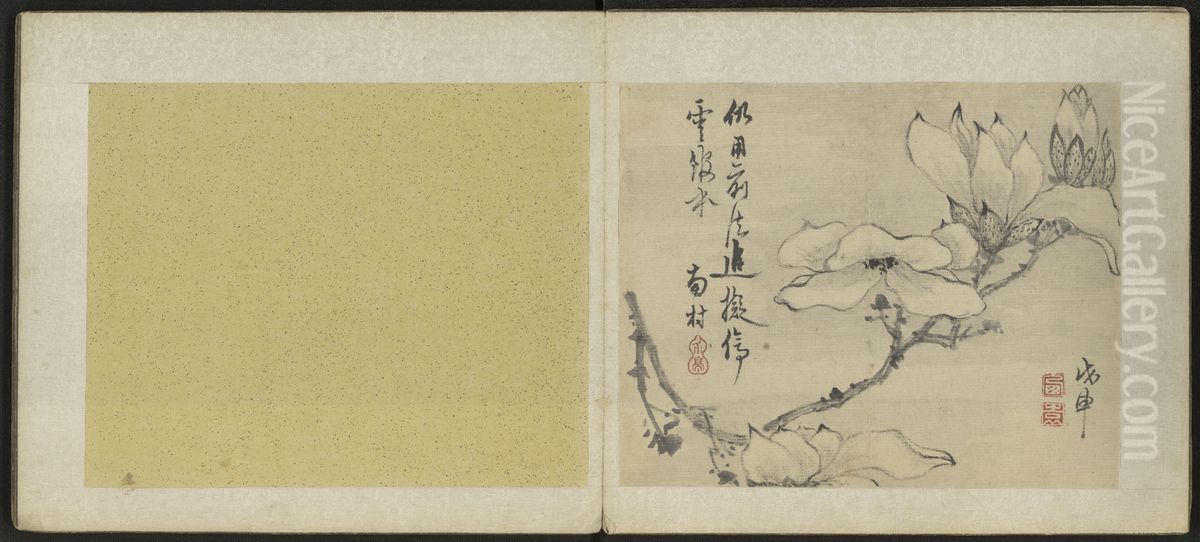 仍用前法追擬停
雲館本
南村
戊申
NiceArtGallery.com